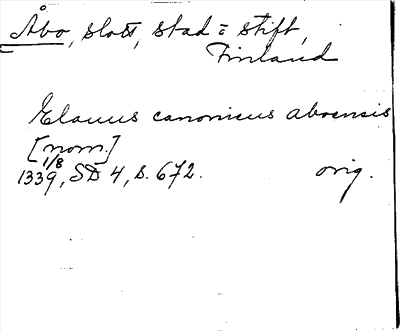 Åbo, slott, stad o stift,
Finland
Elauus canonicus aboensis
[nom.]
1/8
1339, SD 4, s. 672. orig.